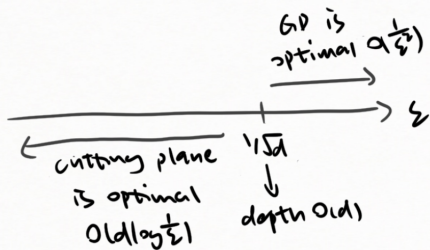 GD is
optimal O(1/ε²)
ε
1/√d
cutting plane
is optimal
O(d log 1/ε)
depth O(d)